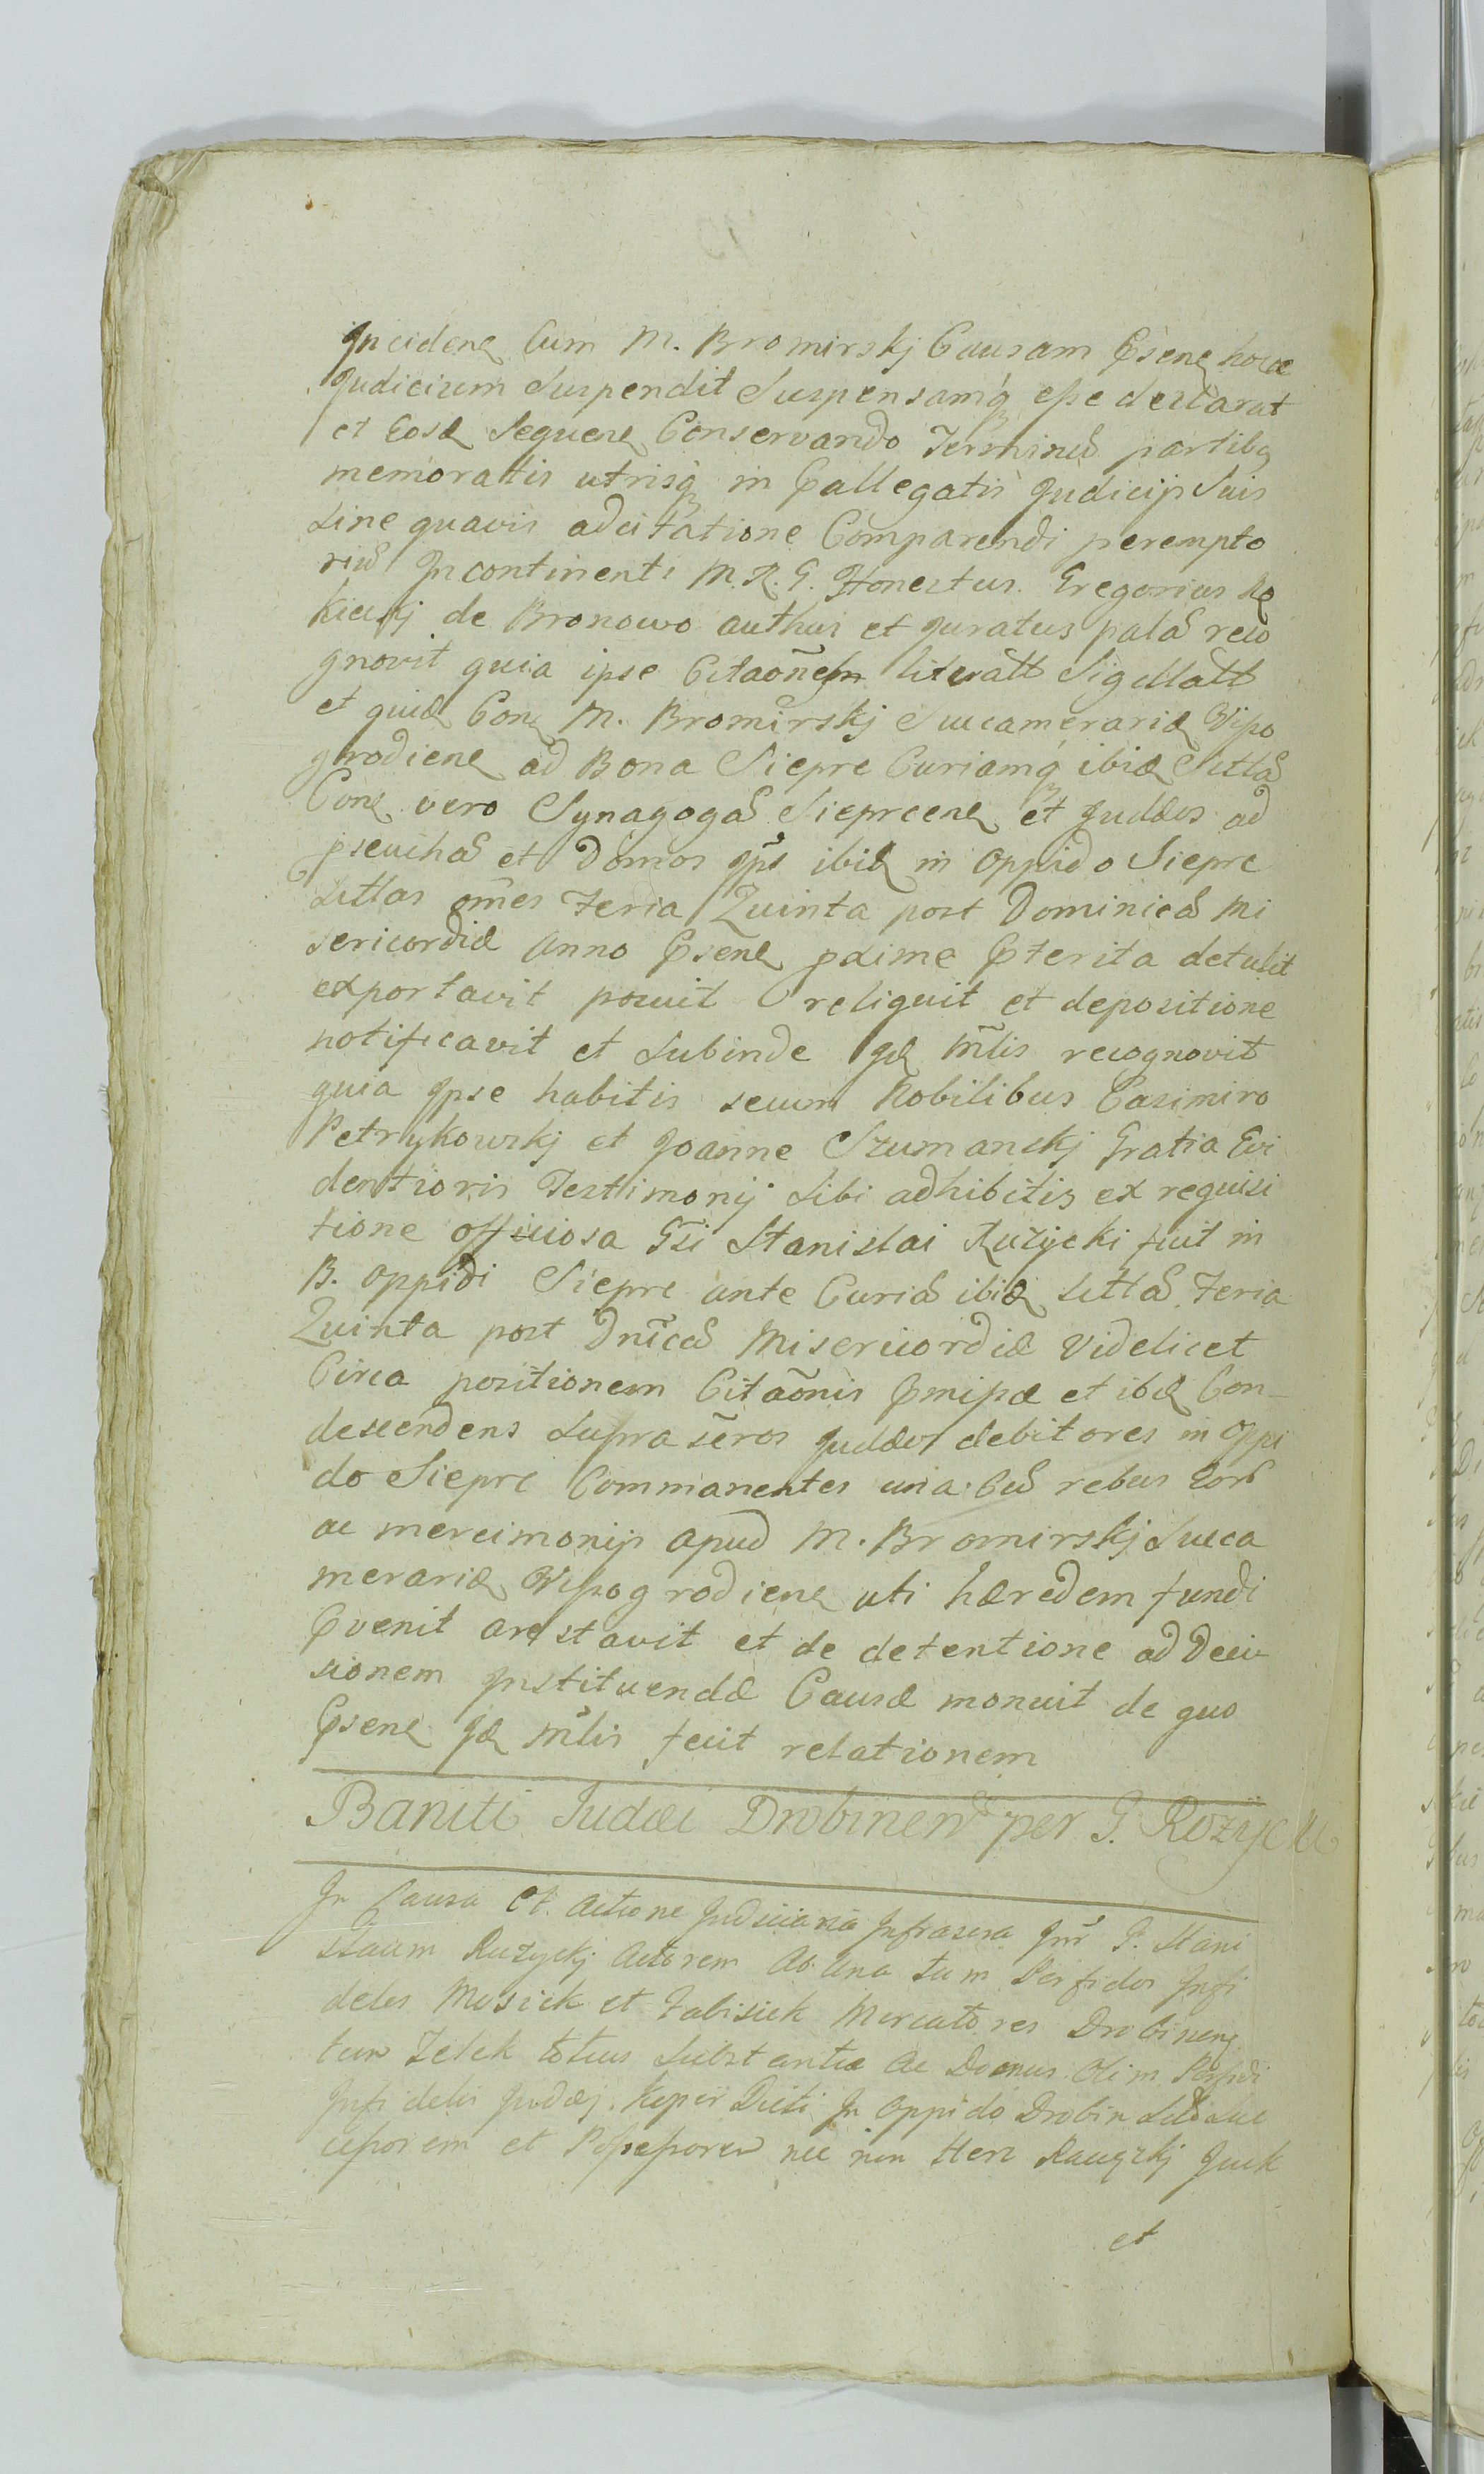 Incidenˀ Cum M. Bromirskj Causam Psenˀ horae
Judicium Suspendit Suspensamq̨ esse declarat
et Eosd Sequenˀ Conservando Terminū partibq
memoratis utrisq̨ in Pallegatis Judicijs Suis
Sine quavis adcitatione Comparendi perempto
riū In continenti M. R. G. Honestus Gregorius Ro
kickj de Bronowo authus et Juratus palā reco
gnovit quia ipse Citaõnem literatt Sigillatt
et quid Conˀ M. Bromirskj Succamerariū Wyszo
grodienˀ ad Bona Sieprc Curiamq̨ ibid Sittā
Conˀ vero Synagogā Sieprcenˀ et Judæos ad
pseuchas et Domos Ips ibid in oppido Sieprc
Sittas om̃es Feria Quinta post Dominicā Mi
sericordiæ anno Psenˀ pxime Pterita detulit
exportavit posuit reliquit et depositione
notificavit et Subinde Id Mtlis recognovit
quia Ipse habitis secum Nobilibus Casimiro
Petrykowskj et Joanne Szumanskj Gratia Evi
dentioris Testimonij Sibi adhibitis ex requisi
tione officiosa Gsi Stanislai Rużycki fuit in
B. oppidi Sieprc ante Curiā ibid Sittā Feria
Quinta post Dnicā Misericordiæ Videlicet
Circa positionem Citaõnis Pmissæ et ibid Con-
descendens Supra sc̃ros Judæos debitores in oppi
do Sieprc Commanentes una Cū rebus Eorū
ac mercimonijs apud M. Bromirskj Succa
merariū Wyszogrodienˀ uti hæredem fundi
Pvenit arestavit et de detentione ad Deciv
sionem Instituendæ Causæ monuit de quo
Psenˀ Id Mtlis fecit relationem
Baniti Judæi Drobinenˢ per G. Rozycki
In Causa Et Actione Judiciaria Infrascra Intr G. Stani
slaum Rużyckj Actorem Ab una tum Perfidos Infi
deles Mosiek et Zabisiek Mercatores Drobinenˀ
tum Zelek totius Substantiæ Ac Domus Olim Perfidi
Infidelis Judæj Dicti In Oppido Drobin Sitæ Suc
cessorem et Possessorem nec non Herz Jcek
et